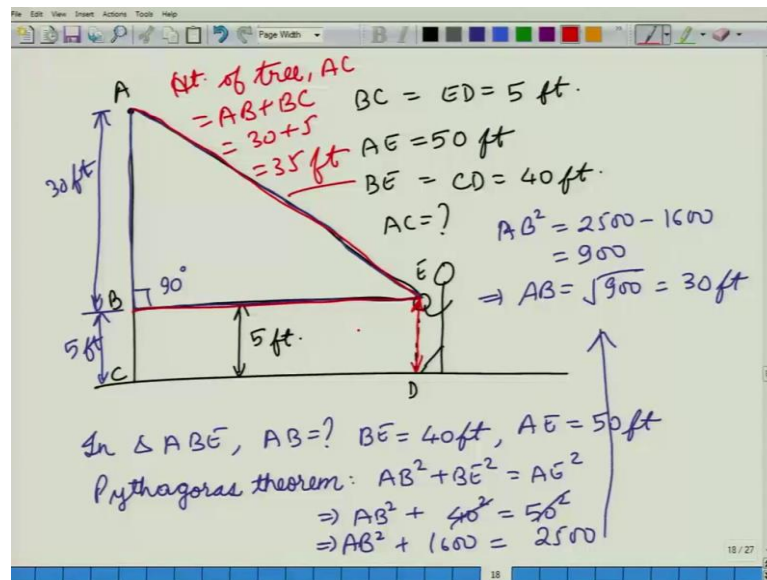 File Edit View Insert Actions Tools Help
Page Width
B I
A
Ht. of tree, AC
= AB + BC
= 30 + 5
= 35 ft
BC = ED = 5 ft.
AE = 50 ft
BE = CD = 40 ft.
AC = ?
AB² = 2500 - 1600
= 900
⇒ AB = √900 = 30 ft
30 ft
E
B
90°
5 ft
5 ft.
C
D
In Δ ABE, AB = ? BE = 40 ft, AE = 50 ft
Pythagoras theorem: AB² + BE² = AE²
⇒ AB² + 40² = 50²
⇒ AB² + 1600 = 2500
18 / 27
18